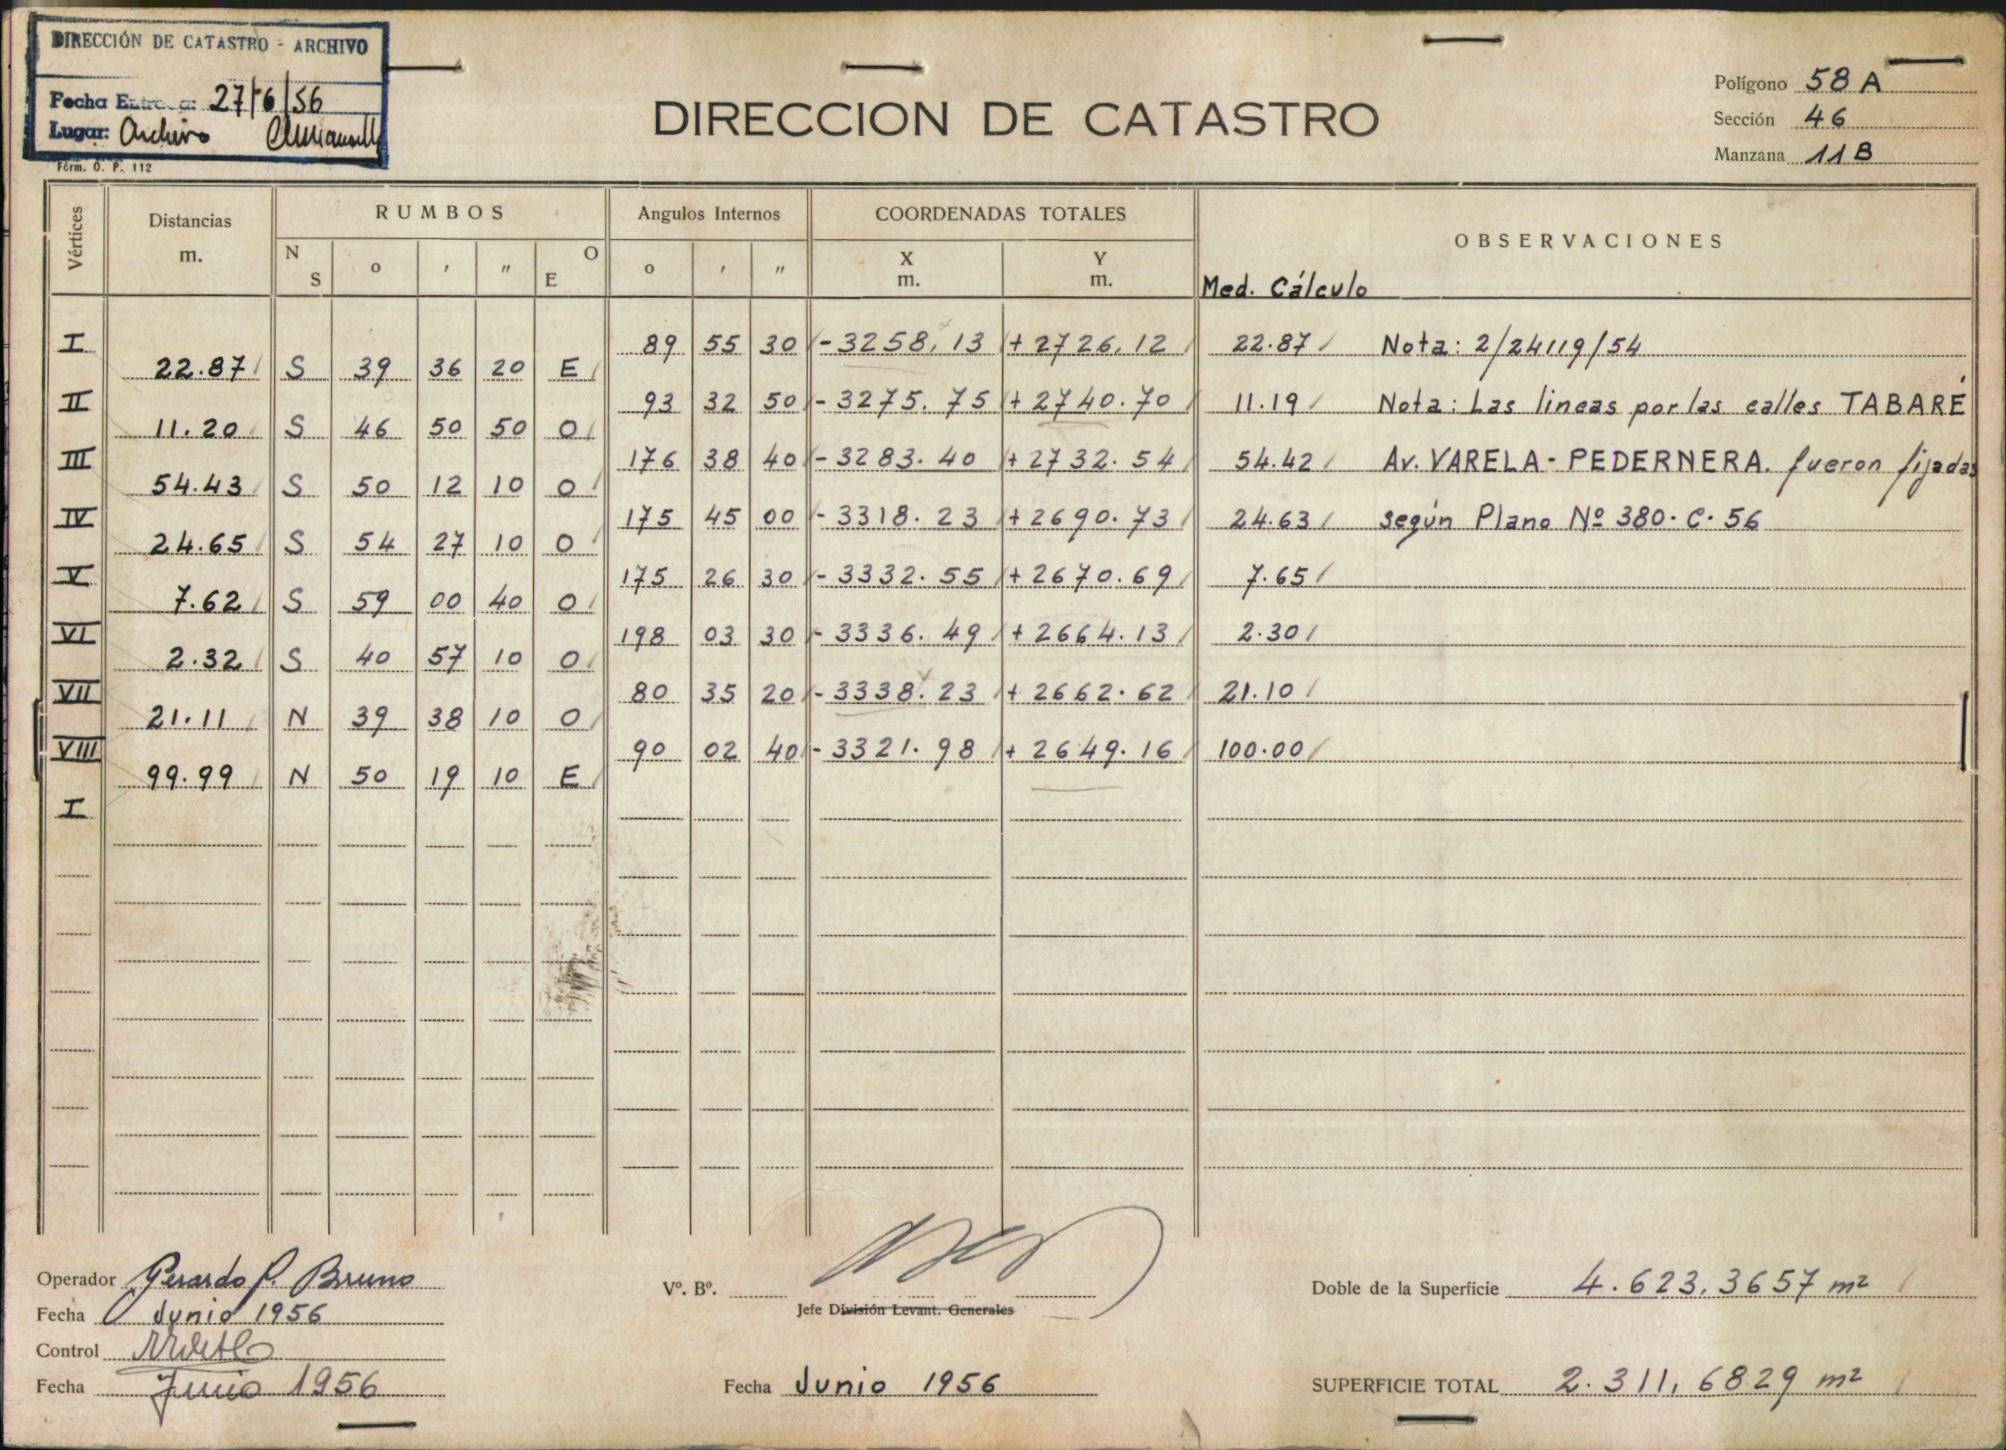 DIRECCIÓN DE CATASTRO - ARCHIVO
Fecha Entrada: 27/6/56
Lugar: Archivo
Fórm. O. P. 112
DIRECCION DE CATASTRO
Polígono 58 A
Sección 46
Manzana 11 B
Vértices Distancias m. RUMBOS Angulos Internos COORDENADAS TOTALES OBSERVACIONES
N S o ' " O E o ' " X m. Y m. Med. Cálculo
I 89 55 30 -3258,13 +2726,12 22.87 Nota: 2/24119/54
22.87 S 39 36 20 E
II 93 32 50 -3275.75 +2740.70 11.19 Nota: Las lineas por las calles TABARÉ
11.20 S 46 50 50 O
III 176 38 40 -3283.40 +2732.54 54.42 Av. VARELA - PEDERNERA. fueron fijadas
54.43 S 50 12 10 O
IV 175 45 00 -3318.23 +2690.73 24.63 según Plano Nº 380.C.56
24.65 S 54 27 10 O
V 175 26 30 -3332.55 +2670.69 7.65
7.62 S 59 00 40 O
VI 198 03 30 -3336.49 +2664.13 2.30
2.32 S 40 57 10 O
VII 80 35 20 -3338.23 +2662.62 21.10
21.11 N 39 38 10 O
VIII 90 02 40 -3321.98 +2649.16 100.00
99.99 N 50 19 10 E
I
Operador Gerardo P. Bruno
Fecha Junio 1956
Control
Fecha Junio 1956
Vº. Bº.
Jefe División Levant. Generales
Fecha Junio 1956
Doble de la Superficie 4.623,3657 m²
SUPERFICIE TOTAL 2.311,6829 m²